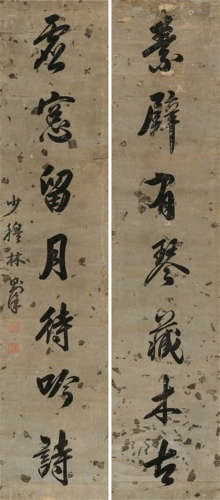 素壁有琴藏太古
虛窓留月待吟詩
少穆林則徐